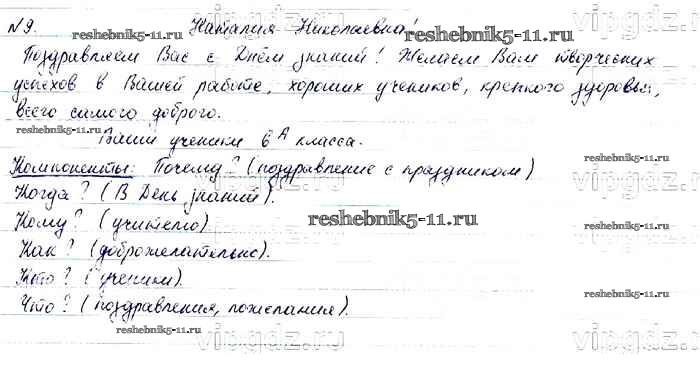 №9. Наталия Николаевна!
Поздравляем Вас с Днём знаний! Желаем Вам творческих
успехов в Вашей работе, хороших учеников, крепкого здоровья,
всего самого доброго.
Ваши ученики 6А класса.
Компоненты: Почему? (поздравление с праздником)
Когда? (В День знаний).
Кому? (учителю)
Как? (доброжелательно).
Кто? (ученики).
Что? (поздравления, пожелания).
reshebnik5-11.ru
reshebnik5-11.ru
reshebnik5-11.ru
reshebnik5-11.ru
reshebnik5-11.ru
reshebnik5-11.ru
reshebnik5-11.ru
vipgdz.ru
vipgdz.ru
vipgdz.ru
vipgdz.ru